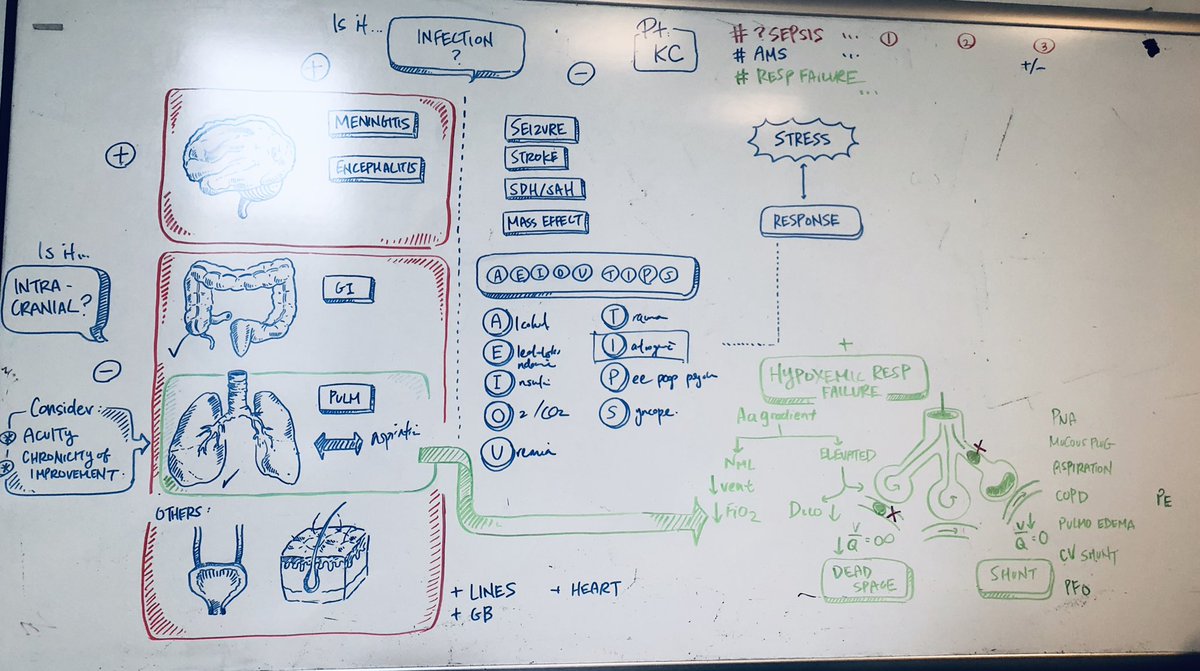 Is it...
INFECTION
?
+
−
Pt.
KC
# ? SEPSIS ...
# AMS ...
# RESP FAILURE ...
1
2
3
+/-
+
MENINGITIS
ENCEPHALITIS
SEIZURE
STROKE
SDH/SAH
MASS EFFECT
STRESS
RESPONSE
Is it...
INTRA-
CRANIAL?
−
GI
PULM
Consider:
* ACUITY
* CHRONICITY OF
IMPROVEMENT
OTHERS:
+ LINES
+ GB
+ HEART
AEIOU TIPS
Alcohol
E
Insulin
O2/CO2
Uremia
Trauma
I
Pee poop psych
Syncope
+
HYPOXEMIC RESP
FAILURE
Aa gradient
NML
↓ vent
↓ FiO2
ELEVATED
DLCO ↓
V/Q = ∞
↓
DEAD
SPACE
X
X
V↓/Q = 0
SHUNT
PNA
MUCOUS PLUG
ASPIRATION
COPD
PULMO EDEMA
CV SHUNT
PFO
PE